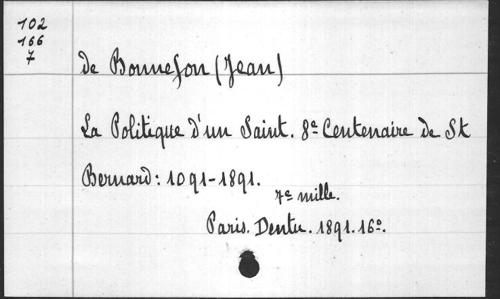 102
166
7
de Bonnefon (Jean)
La Politique d'un Saint. 8e Centenaire de St
Bernard: 1091-1891.
7e mille.
Paris. Dentu. 1891. 16o.